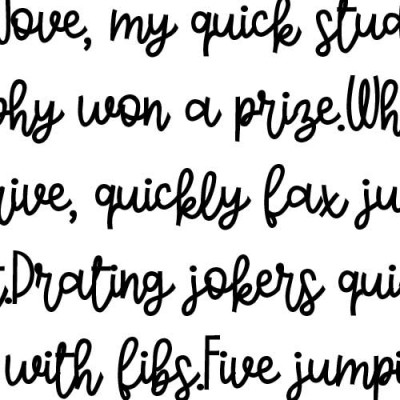 Jove, my quick stud
phy won a prize.Wh
rive, quickly fax ju
t.Drating jokers qui
with fibs.Five jumpi